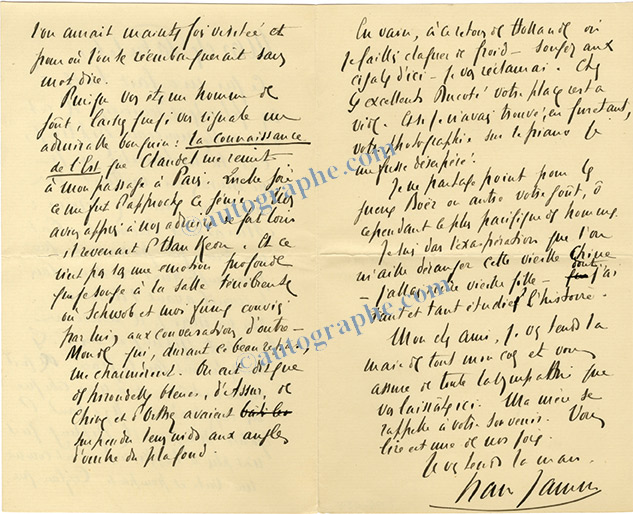 l'on aurait maintes fois visitée et
pour où l'on se réembarquerait sans
mot dire.
Puisque vous êtes un homme de
goût, que je vous signale un
admirable bouquin : la connaissance
de l'Est que Claudel me remit
à mon passage à Paris. Quelle joie
ce me fut d'approcher ce génie que nous
avons appris à nous admirer se fat lors
revenant d'Han Keou. Et ce
n'est pas sans une émotion profonde
que je songe à la salle ténébreuse
où Schwob et moi fûmes conviés
par lui aux conversations d'outre-
Monde qui, durant ce beau repas,
me charmèrent. On aurait dit que
des hirondelles bleues, d'Assur, de
Chine et d'Orthez avaient
suspendu leurs nids aux angles
d'ombre du plafond.
En vain, à ce retour de Hollande où
je faillis claquer de froid - songez aux
cigales d'ici - je vous réclamai. Chez
les excellents votre place est
vide. Et je n'avais trouvé, en furetant,
votre photographie sur le piano
me fusse désespéré.
Je ne partage point pour les
guerres Boër ou autre votre goût, ô
cependant le plus pacifique des hommes.
Je suis dans l'exaspération que l'on
m'aille déranger cette vieille Chine
- j'allais dire vieille fille - dont j'ai
tant et tant étudié l'histoire.
Mon cher ami, je vous tends la
main de tout mon cœur et vous
assure de toute la sympathie que
vous laissâtes ici. Ma mère se
rappelle à votre souvenir. Vous
lire est une de nos joies.
Je vous tends la main.
Francis Jammes
©autographe.com
©autographe.com
©autographe.com